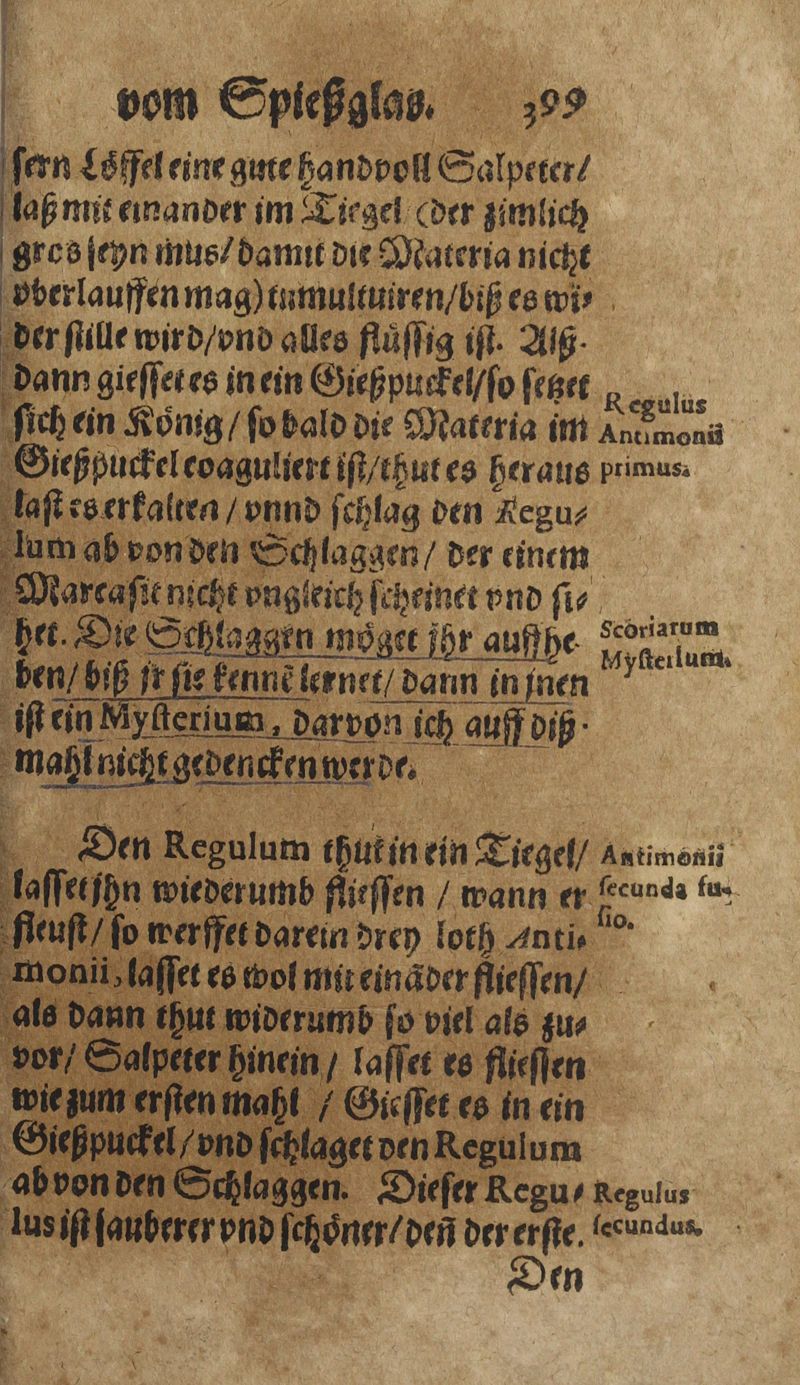 vom Spießglas. 399
sern Löffel eine gute handvoll Salpeter/
laß mit einander im Tiegel (der zimlich
gros seyn mus/ damit die Materia nicht
vberlauffen mag) tumultuiren/ biß es wi-
der stille wird/ vnd alles flüssig ist. Alß-
dann giesset es in ein Gießpuckel/ so setzet
sich ein König/ so bald die Materia im
Gießpuckel coaguliert ist/ thut es heraus
last es erkalten/ vnnd schlag den Regu-
lum ab von den Schlaggen/ der einem
Marcasit nicht vngleich scheinet vnd si-
het. Die Schlaggen möget jhr auffhe-
ben/ biß jr sie kennē lernet/ dann in jnen
ist ein Mysterium, darvon ich auff diß-
mahl nicht gedencken werde.
Regulus
Antimonii
primus.
Scoriarum
Mysterium.
Den Regulum thut in ein Tiegel/
lasset jhn wiederumb fliessen / wann er
fleust/ so werffet darein drey loth Anti-
monii, lasset es wol mit eināder fliessen/
als dann thut widerumb so viel als zu-
vor/ Salpeter hinein/ lasset es fliessen
wie zum ersten mahl / Giesset es in ein
Gießpuckel/ vnd schlaget den Regulum
ab von den Schlaggen. Dieser Regu-
lus ist sauberer vnd schöner/ deñ der erste.
Antimonii
secunda fu-
sio.
Regulus
secundus.
Den